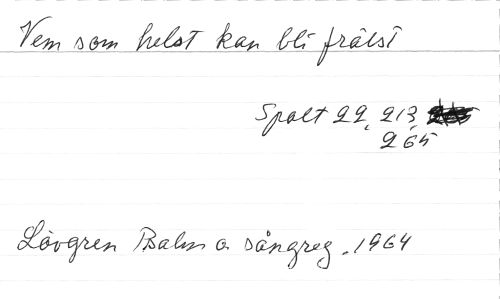 Vem som helst kan bli frälst
Spalt 22, 213,
265
Lövgren Psalm o sångreg. 1964